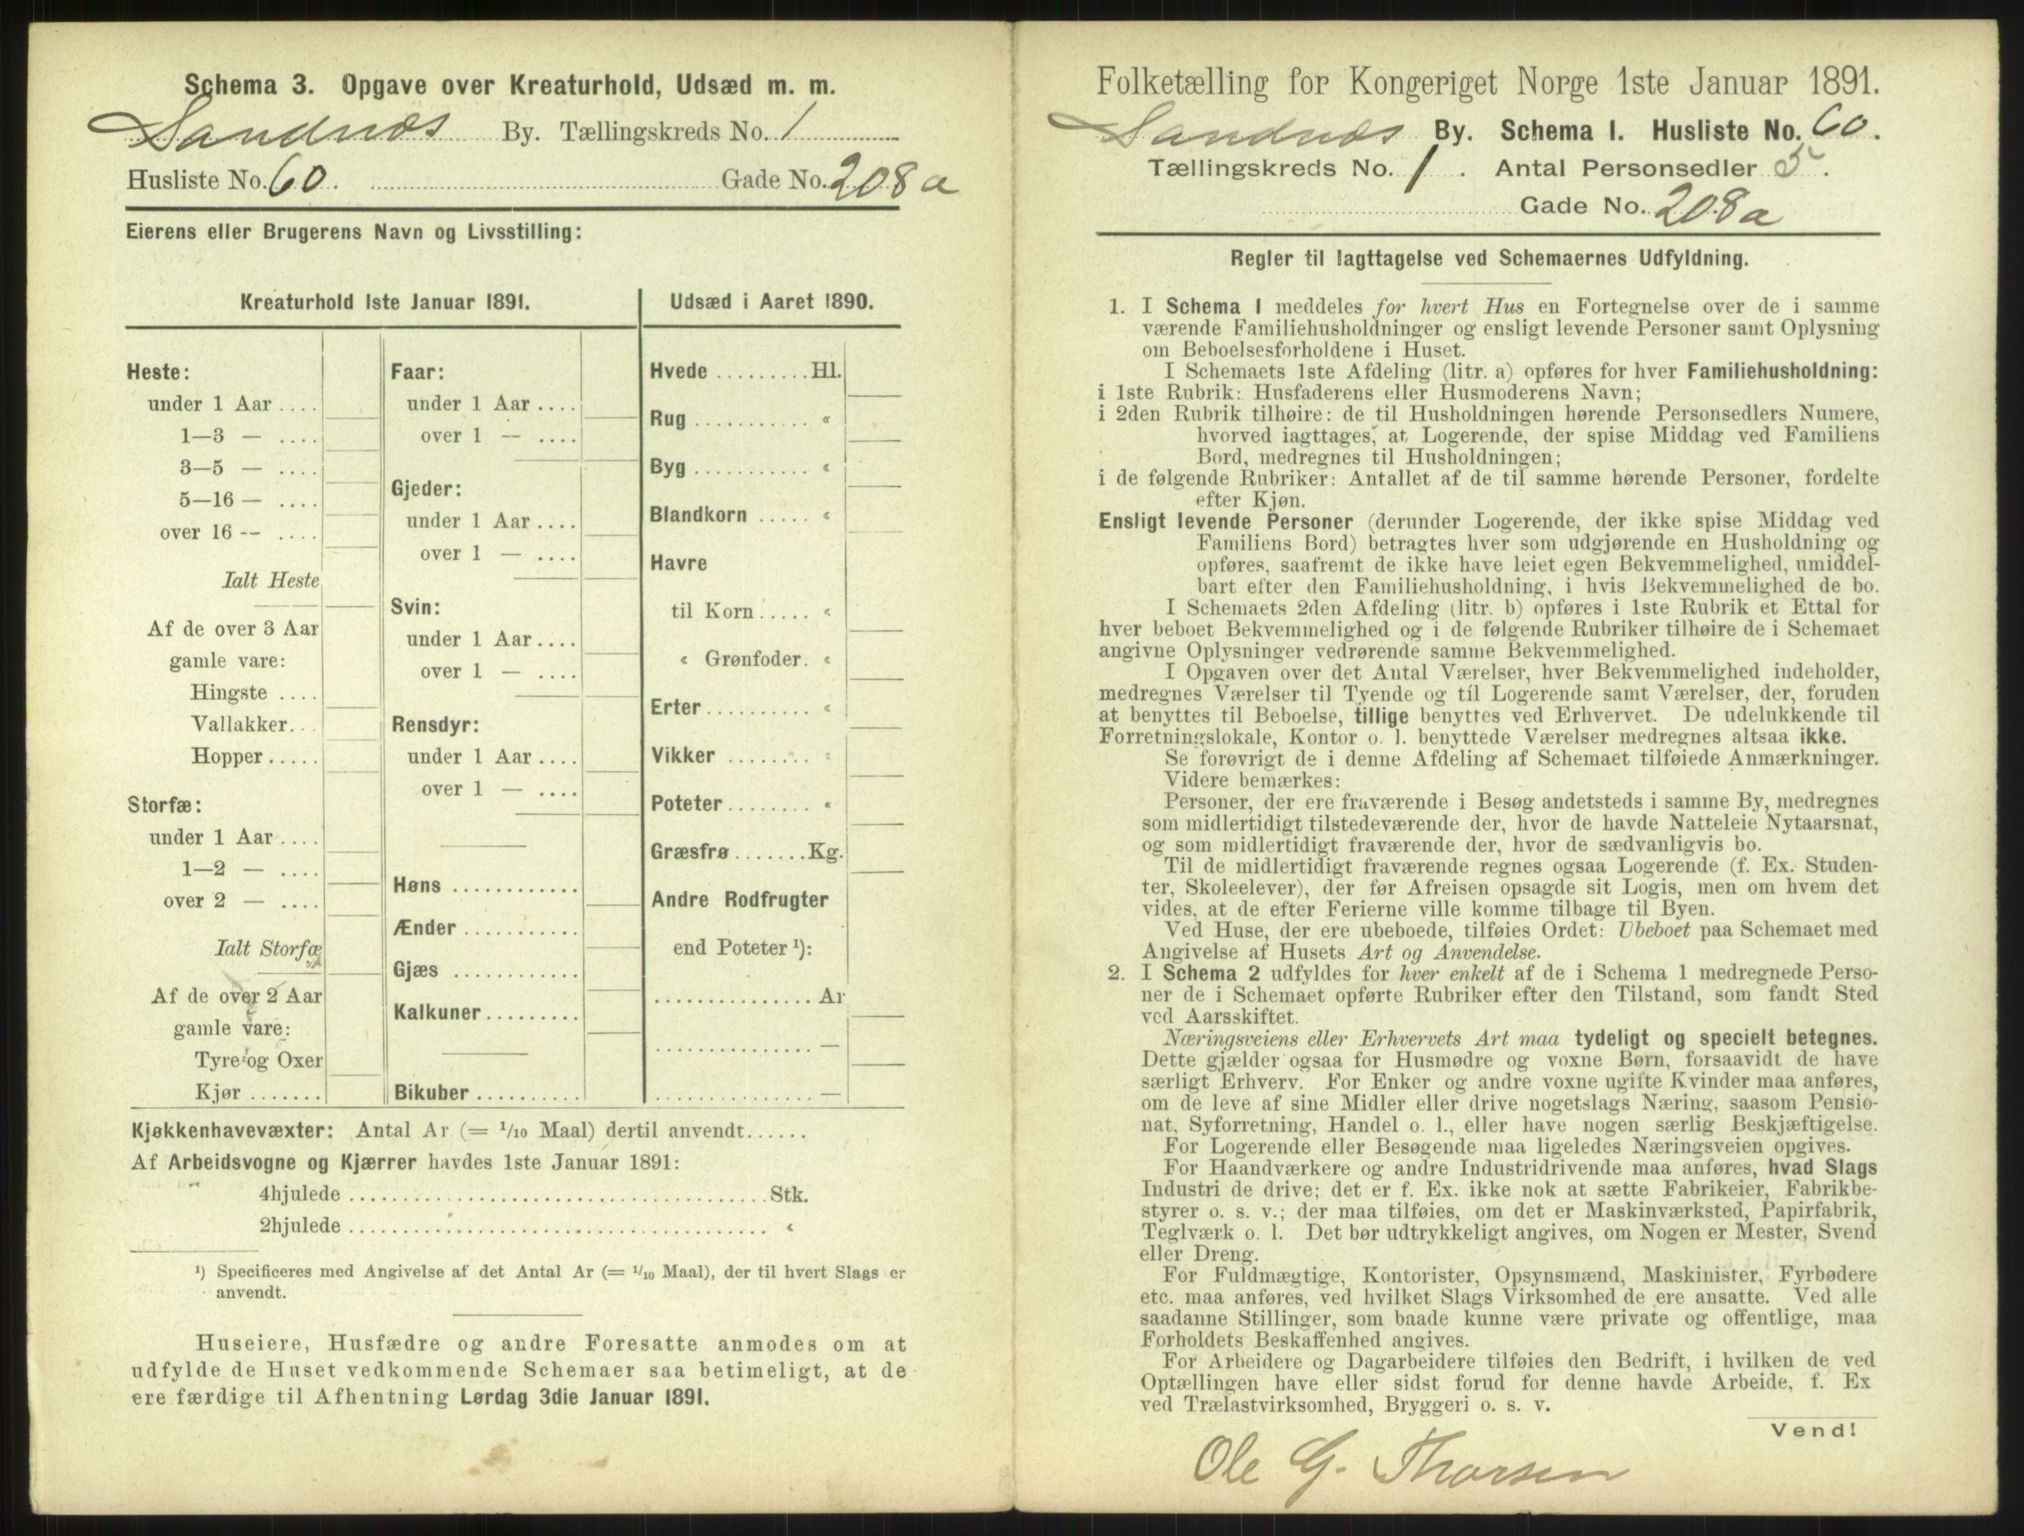 Schema 3. Opgave over Kreaturhold, Udsæd m. m.
Sandnæs By. Tællingskreds No. 1
Husliste No. 60. Gade No. 208a
Eierens eller Brugerens Navn og Livsstilling:
Kreaturhold 1ste Januar 1891.
Heste:
under 1 Aar ....
1—3 — ....
3—5 — ....
5—16 — ....
over 16 -- ....
Ialt Heste
Af de over 3 Aar
gamle vare:
Hingste ....
Vallakker...
Hopper.....
Storfæ:
under 1 Aar ....
1—2 — ....
over 2 — ....
Ialt Storfæ
Af de over 2 Aar
gamle vare:
Tyre og Oxer
Kjør .......
Faar:
under 1 Aar ....
over 1 — ....
Gjeder:
under 1 Aar ....
over 1 — ....
Svin:
under 1 Aar ....
over 1 — ....
Rensdyr:
under 1 Aar ....
over 1 — ....
Høns ............
Ænder ...........
Gjæs ............
Kalkuner .........
Bikuber ..........
Udsæd i Aaret 1890.
Hvede ......... Hl.
Rug ........... «
Byg ........... «
Blandkorn ..... «
Havre
til Korn ..... «
« Grønfoder. «
Erter .......... «
Vikker ........ «
Poteter ........ «
Græsfrø ....... Kg.
Andre Rodfrugter
end Poteter ¹):
............... Ar
............... —
............... —
Kjøkkenhavevæxter: Antal Ar (= 1/10 Maal) dertil anvendt......
Af Arbeidsvogne og Kjærrer havdes 1ste Januar 1891:
4hjulede ........................................ Stk.
2hjulede ........................................ «
¹) Specificeres med Angivelse af det Antal Ar (= 1/10 Maal), der til hvert Slags er
anvendt.
Huseiere, Husfædre og andre Foresatte anmodes om at
udfylde de Huset vedkommende Schemaer saa betimeligt, at de
ere færdige til Afhentning Lørdag 3die Januar 1891.
Folketælling for Kongeriget Norge 1ste Januar 1891.
Sandnæs By. Schema 1. Husliste No. 60.
Tællingskreds No. 1. Antal Personsedler 5.
Gade No. 208a
Regler til Iagttagelse ved Schemaernes Udfyldning.
1. I Schema 1 meddeles for hvert Hus en Fortegnelse over de i samme
værende Familiehusholdninger og ensligt levende Personer samt Oplysning
om Beboelsesforholdene i Huset.
I Schemaets 1ste Afdeling (litr. a) opføres for hver Familiehusholdning:
i 1ste Rubrik: Husfaderens eller Husmoderens Navn;
i 2den Rubrik tilhøire: de til Husholdningen hørende Personsedlers Numere,
hvorved iagttages, at Logerende, der spise Middag ved Familiens
Bord, medregnes til Husholdningen;
i de følgende Rubriker: Antallet af de til samme hørende Personer, fordelte
efter Kjøn.
Ensligt levende Personer (derunder Logerende, der ikke spise Middag ved
Familiens Bord) betragtes hver som udgjørende en Husholdning og
opføres, saafremt de ikke have leiet egen Bekvemmelighed, umiddel-
bart efter den Familiehusholdning, i hvis Bekvemmelighed de bo.
I Schemaets 2den Afdeling (litr. b) opføres i 1ste Rubrik et Ettal for
hver beboet Bekvemmelighed og i de følgende Rubriker tilhøire de i Schemaet
angivne Oplysninger vedrørende samme Bekvemmelighed.
I Opgaven over det Antal Værelser, hver Bekvemmelighed indeholder,
medregnes Værelser til Tyende og til Logerende samt Værelser, der, foruden
at benyttes til Beboelse, tillige benyttes ved Erhvervet. De udelukkende til
Forretningslokale, Kontor o. l. benyttede Værelser medregnes altsaa ikke.
Se forøvrigt de i denne Afdeling af Schemaet tilføiede Anmærkninger.
Videre bemærkes:
Personer, der ere fraværende i Besøg andetsteds i samme By, medregnes
som midlertidigt tilstedeværende der, hvor de havde Natteleie Nytaarsnat,
og som midlertidigt fraværende der, hvor de sædvanligvis bo.
Til de midlertidigt fraværende regnes ogsaa Logerende (f. Ex. Studen-
ter, Skoleelever), der før Afreisen opsagde sit Logis, men om hvem det
vides, at de efter Ferierne ville komme tilbage til Byen.
Ved Huse, der ere ubeboede, tilføies Ordet: Ubeboet paa Schemaet med
Angivelse af Husets Art og Anvendelse.
2. I Schema 2 udfyldes for hver enkelt af de i Schema 1 medregnede Perso-
ner de i Schemaet opførte Rubriker efter den Tilstand, som fandt Sted
ved Aarsskiftet.
Næringsveiens eller Erhvervets Art maa tydeligt og specielt betegnes.
Dette gjælder ogsaa for Husmødre og voxne Børn, forsaavidt de have
særligt Erhverv. For Enker og andre voxne ugifte Kvinder maa anføres,
om de leve af sine Midler eller drive nogetslags Næring, saasom Pensio-
nat, Syforretning, Handel o. l., eller have nogen særlig Beskjæftigelse.
For Logerende eller Besøgende maa ligeledes Næringsveien opgives.
For Haandværkere og andre Industridrivende maa anføres, hvad Slags
Industri de drive; det er f. Ex. ikke nok at sætte Fabrikeier, Fabrikbe-
styrer o. s. v.; der maa tilføies, om det er Maskinværksted, Papirfabrik,
Teglværk o. l. Det bør udtrykkeligt angives, om Nogen er Mester, Svend
eller Dreng.
For Fuldmægtige, Kontorister, Opsynsmænd, Maskinister, Fyrbødere
etc. maa anføres, ved hvilket Slags Virksomhed de ere ansatte. Ved alle
saadanne Stillinger, som baade kunne være private og offentlige, maa
Forholdets Beskaffenhed angives.
For Arbeidere og Dagarbeidere tilføies den Bedrift, i hvilken de ved
Optællingen have eller sidst forud for denne havde Arbeide, f. Ex
ved Trælastvirksomhed, Bryggeri o. s. v.
Vend!
Ole G. Thorsen